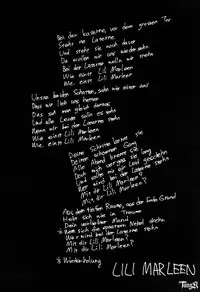 Bei der Kaserne, vor dem grossen Tor
Steht ne Laterne
Und steht sie noch davor
Da wollen wir uns wiedersehn
Bei der Laterne woll'n wir stehn
Wie einst Lili Marleen
Wie einst Lili Marleen
Unsre beiden Schatten, sahn wie einer aus
Dass wir lieb uns hatten
Das sah man gleich daraus
Und alle Leute solln es sehn
Wenn wir bei der Laterne stehn
Wie einst Lili Marleen
Wie einst Lili Marleen
Deine Schritte kennt sie
Deinen schönen Gang
Alle Abend brennt sie
Doch mich vergass sie lang
Und sollte mir ein Leid geschehn
Wer wird bei der Laterne stehn
Mit dir Lili Marleen?
Mit dir Lili Marleen?
Aus dem tiefen Raume, aus der Erde Grund
Hebt sich wie im Traume
Dein verliebter Mund
* Wenn sich die späten Nebel drehn
Wer wird bei der Laterne stehn
Mit dir Lili Marleen?
Mit dir Lili Marleen?
* Wiederholung
LILI MARLEEN